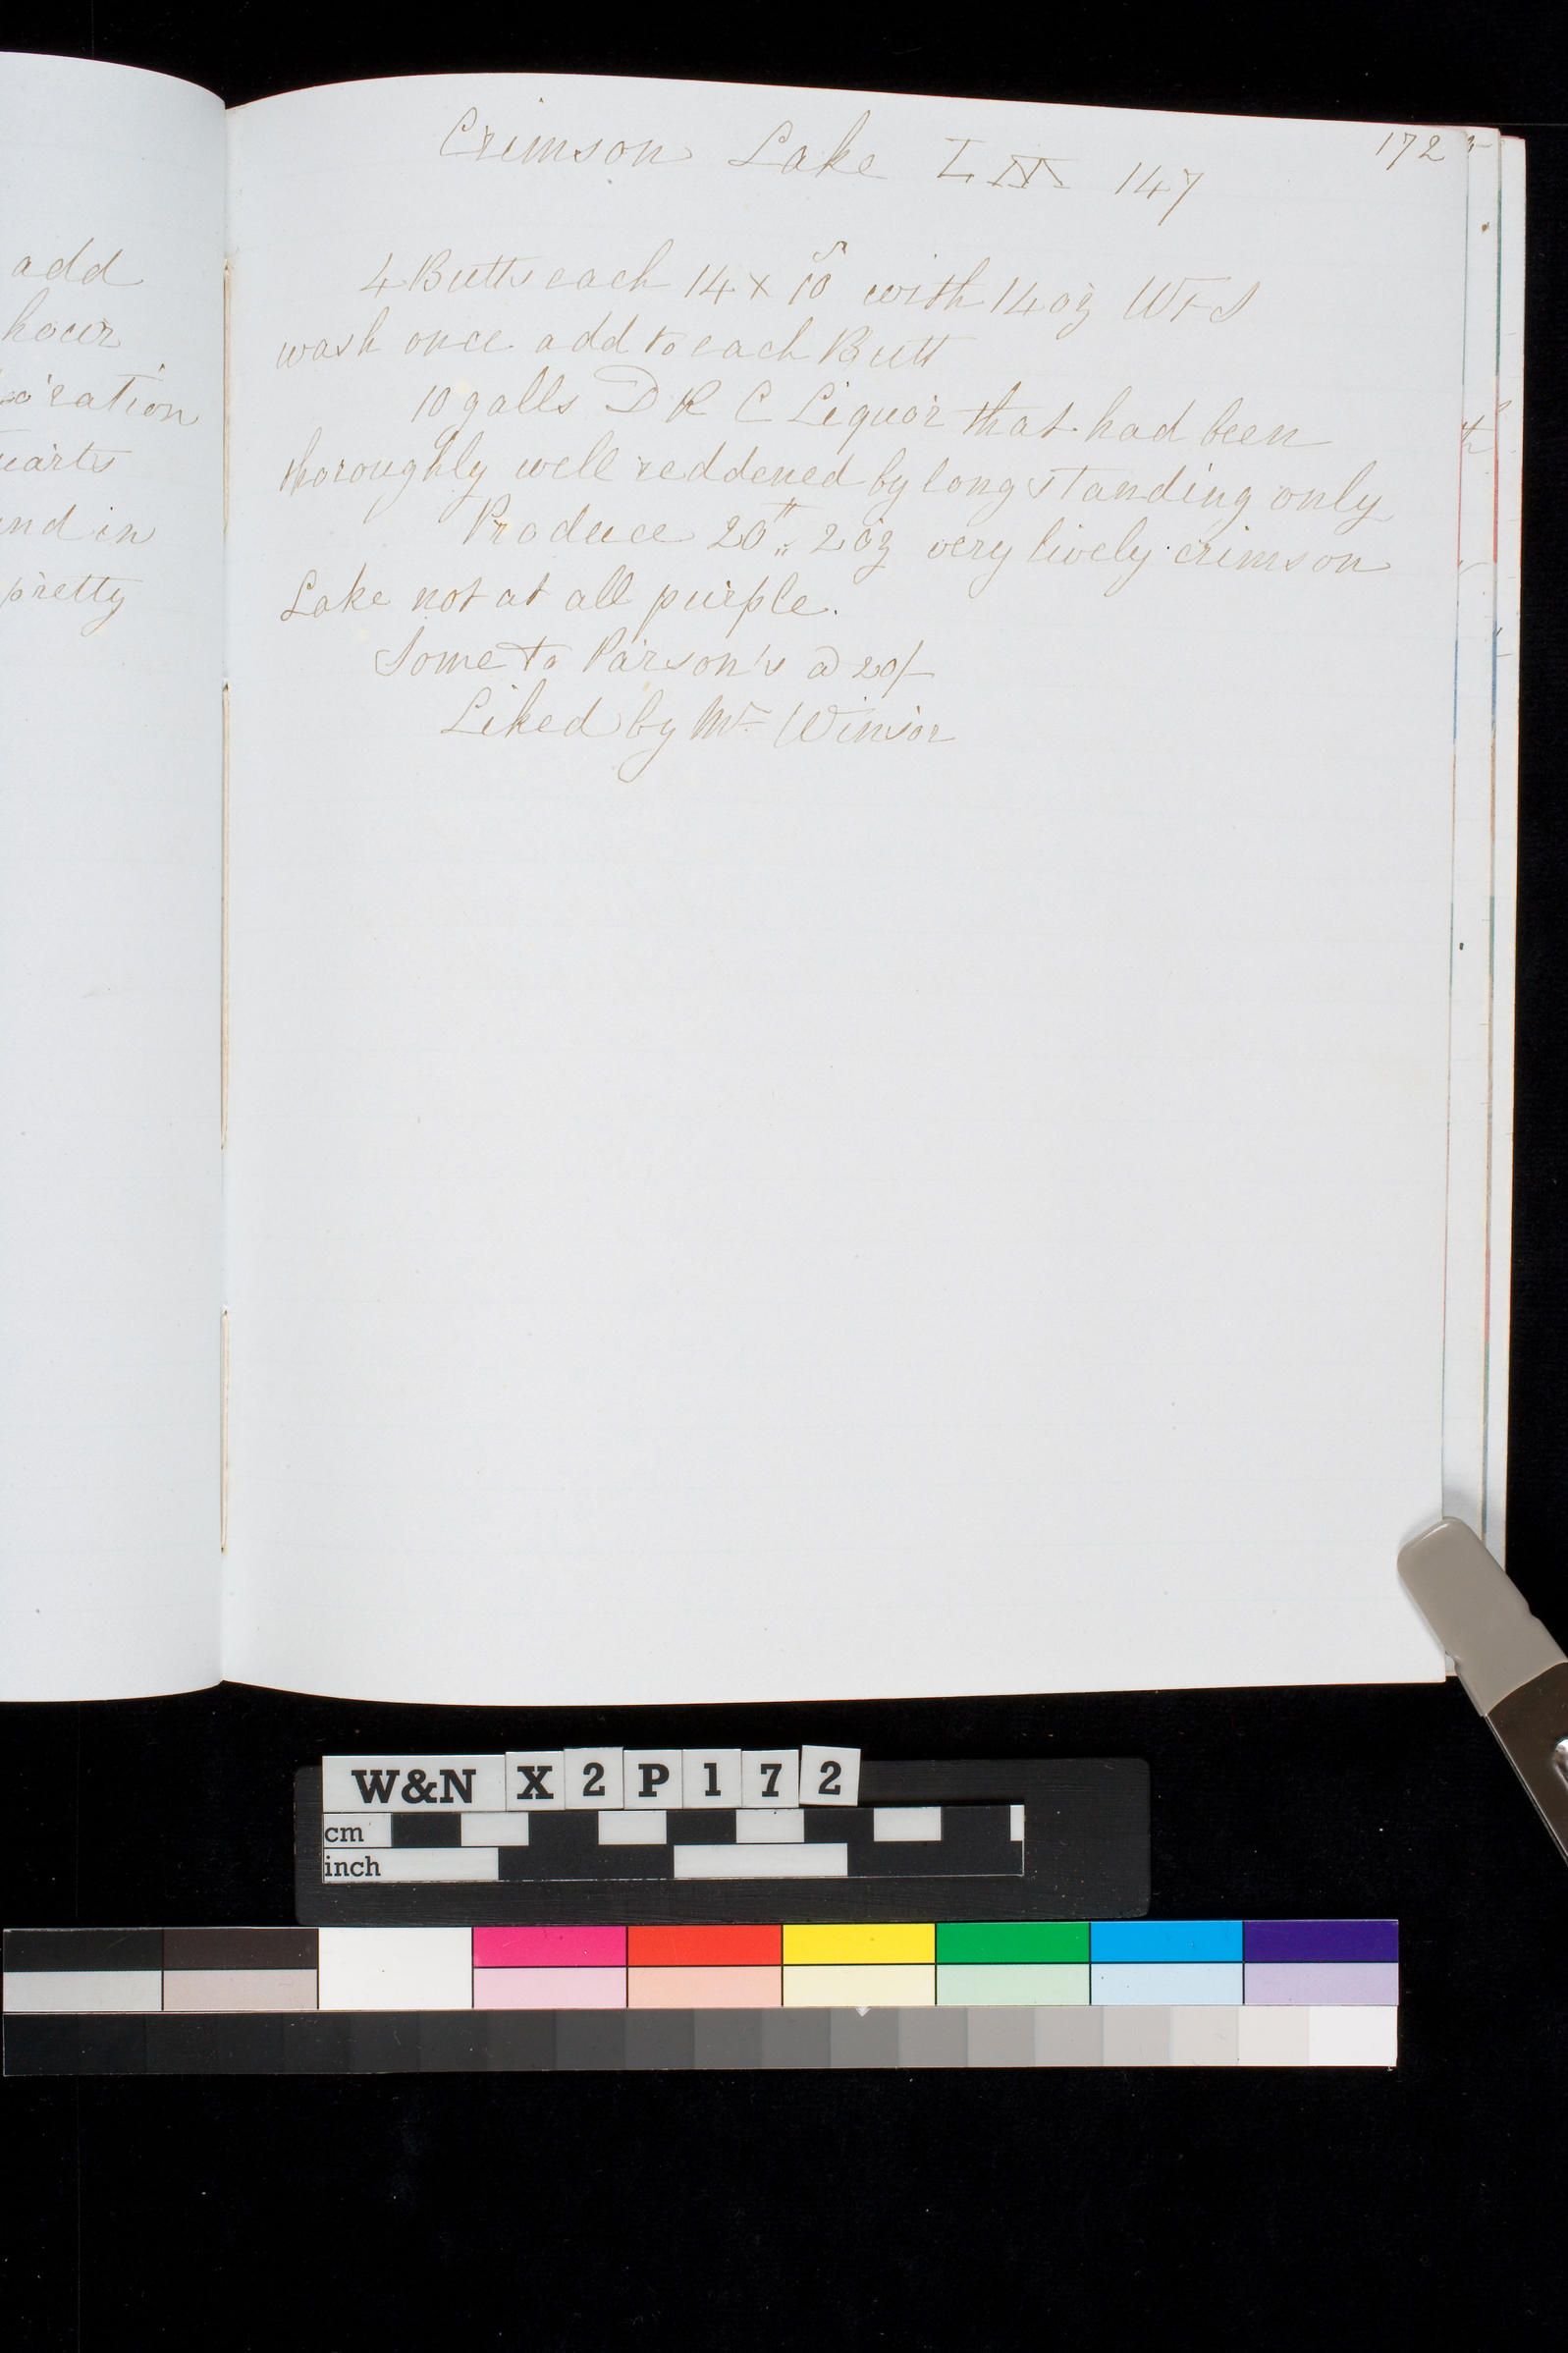 add
hour
ration
uarts
and in
pretty
172
Crimson Lake L IX 147
4 Butts each 14 x 10 with 14 oz W+S
wash once add to each Butt
10 galls D R C Liquor that had been
thoroughly well reddened by long standing only
Produce 20 ,, 2 oz very lively crimson
Lake not at all purple.
Some to Parson's @ 20/-
Liked by Mr Winsor
W&N X 2 P 1 7 2
cm
inch